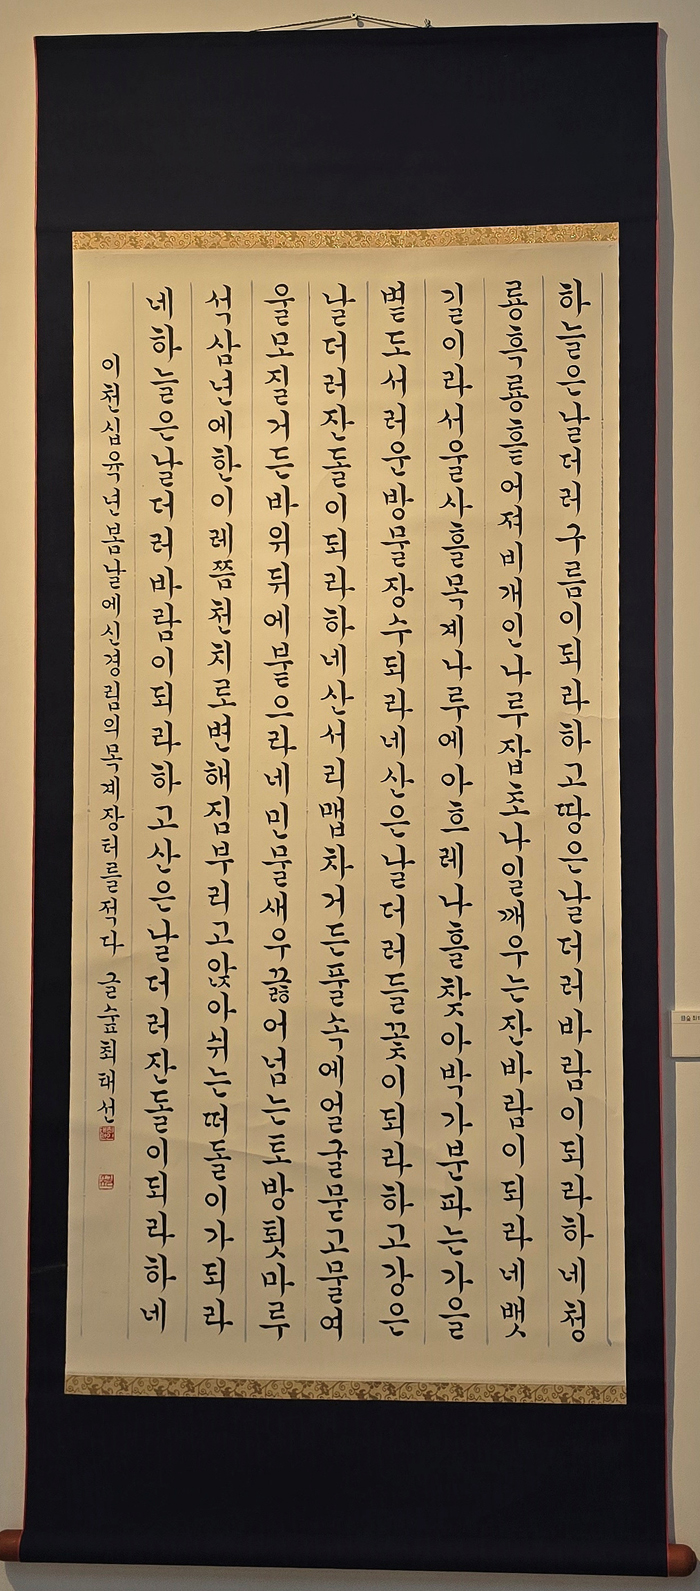 하늘은날더러구름이되라하고땅은날더러바람이되라하네청
룡흑룡흩어져비개인나루잡초나일깨우는잔바람이되라네뱃
길이라서울사흘목계나루에아흐레나흘찾아박가분파는가을
볕도서러운방물장수되라네산은날더러들꽃이되라하고강은
날더러잔돌이되라하네산서리맵차거든풀속에얼굴묻고물여
울모질거든바위뒤에붙으라네민물새우끓어넘는토방툇마루
석삼년에한이레쯤천치로변해짐부리고앉아쉬는떠돌이가되라
네하늘은날더러바람이되라하고산은날더러잔돌이되라하네
이천십육년봄날에신경림의목계장터를적다 글숲최태선